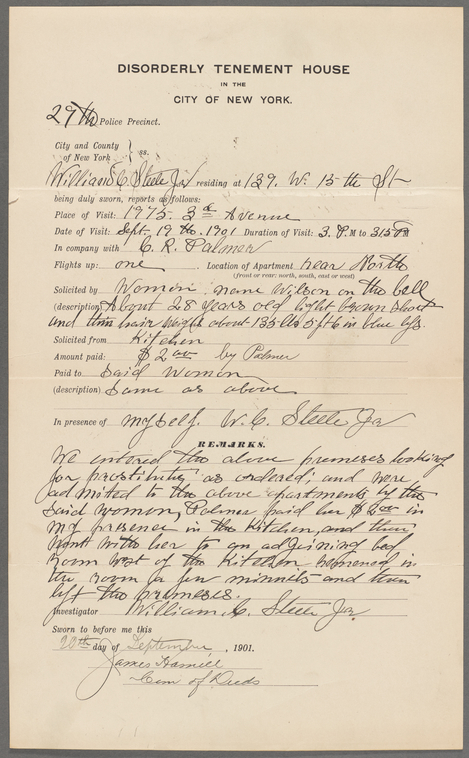 DISORDERLY TENEMENT HOUSE
IN THE
CITY OF NEW YORK.
29th Police Precinct.
City and County
of New York } ss.
William C. Steele Jr residing at 139. W. 15th St
being duly sworn, reports as follows:
Place of Visit: 1975. 3rd Avenue
Date of Visit: Sept. 19th. 1901 Duration of Visit: 3. P.M to 315 P M
In company with C. R. Palmer
Flights up: one Location of Apartment rear North
(front or rear: north, south, east or west)
Solicited by Women name Wilson on the bell
(description) About 28 years old light brown
and thin hair weight about 135 lbs 5 ft 6 in blue eyes.
Solicited from Kitchen
Amount paid: $2 00 by Palmer
Paid to said Women
(description) Same as above
In presence of myself. W. C. Steele Jr
REMARKS.
We entered the above premeses looking
for prostitutes as ordered; and were
admited to the above apartments by the
said women, Palmer paid her $2.00 in
my presence in the Kitchen, and then
with her to an adjoining bed
room west of the Kitchen remained in
the room a few minuets and then
left the premeses.
Investigator William C. Steele Jr.
Sworn to before me this
20th day of September, 1901.
James Hamill
Com of Deeds